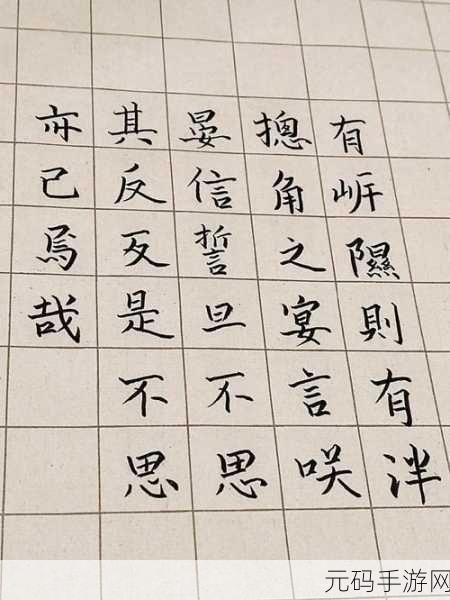 有岍隰則有泮
摠角之宴言咲
晏信誓旦不思
其反反是不思
亦己焉哉
元码手游网